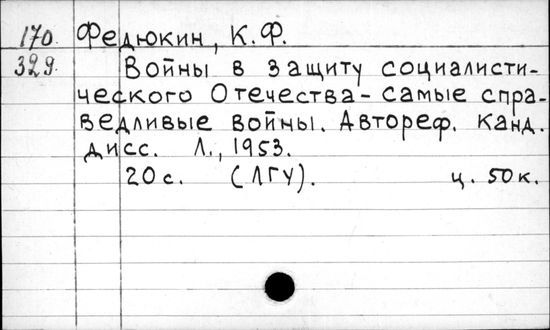 170. Федюкин, К.Ф.
329. Войны в защиту социалисти-
ческого Отечества - самые спра-
ведливые войны. Автореф. канд.
дисс. Л., 1953.
20 с. (ЛГУ). ц. 50 к.